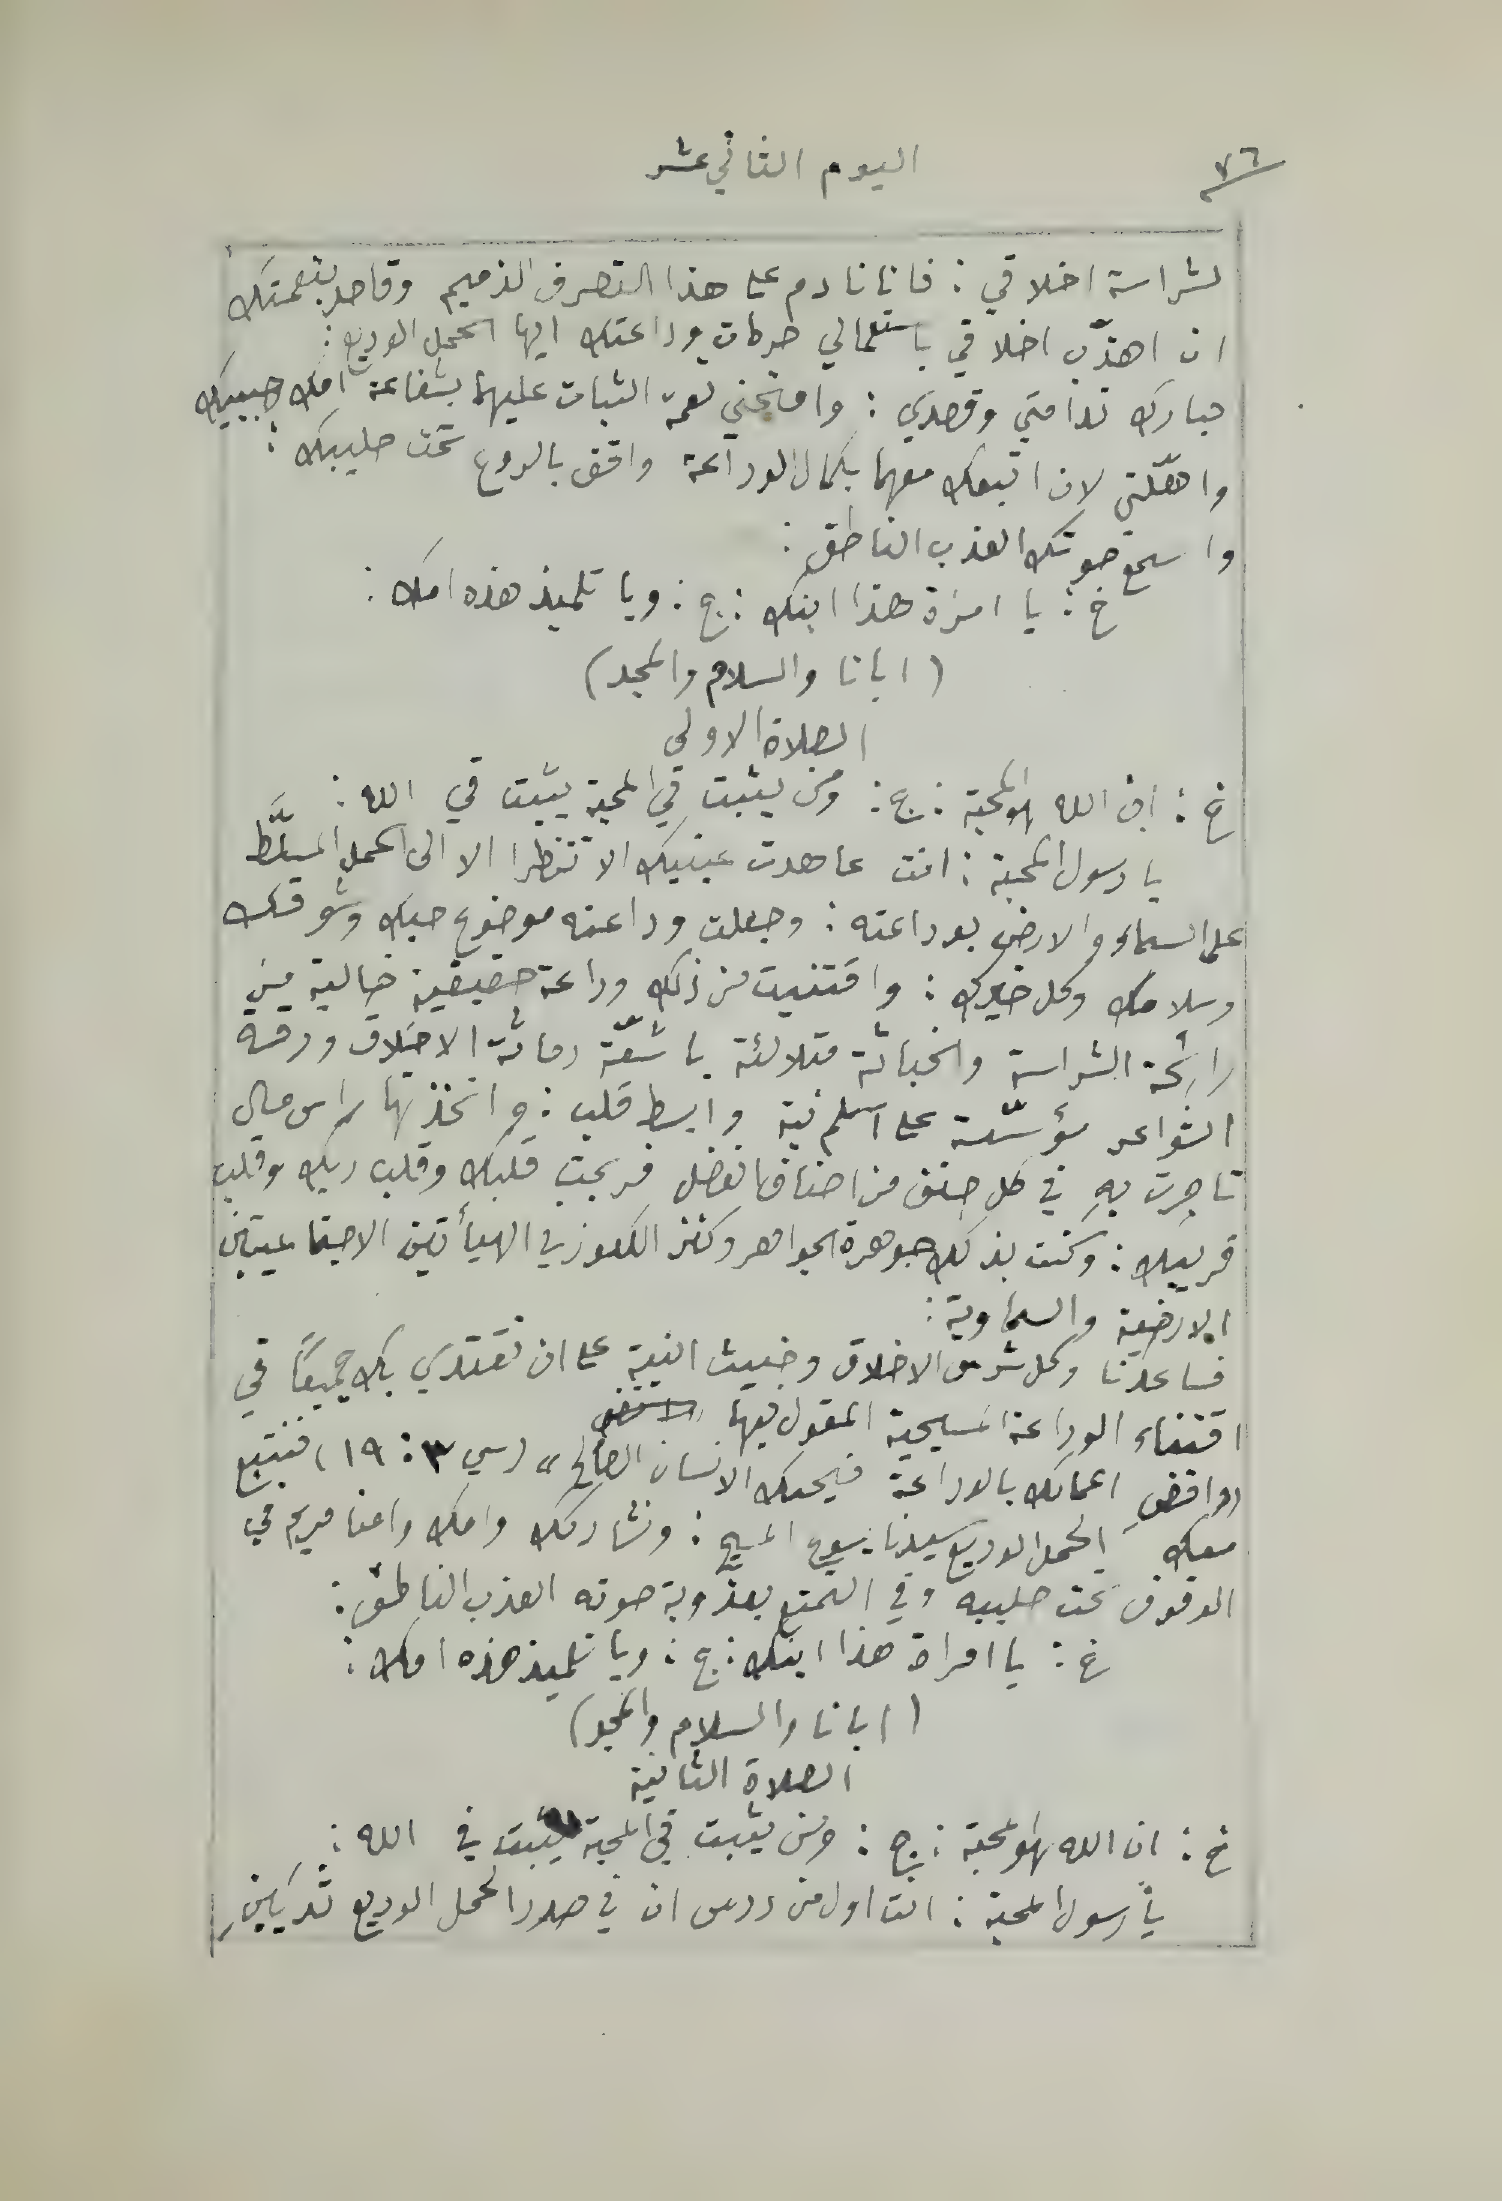 ٧٦
اليوم الثاني عشر
لشراسة اخلاقي : فانا نادم على هذا التصرف الذميم وقاصد بنعمتك
ان اهذّب اخلاقي باستعمالي حركات وداعتك ايها الحمل الوديع :
فبارك ندامتي وقصدي : وامنحني نعمة الثبات عليهما بشفاعة امك وحبيبك
واهّلني لان اتبعك معهما بكمال الوداعة واقف بالروع تحت صليبك :
واسمع صوتك العذب الناطق :
خ : يا امرَاة هذا ابنك : ج : ويا تلميذ هذه امك :
( ابانا والسلام والمجد )
الصلاة الاولى
خ : ان الله لهو المحبة : ج : ومن يثبت في المحبة يثبت في الله :
يا رسول المحبة : انت عاهدت عينيك الا تنظرا الا الى الحمل المسلَّط
على السماء والارض بوداعته : وجعلت وداعته موضوع حبك وشوقك
وسلامك وكل خيرك : واقتنيت من ذلك وداعة حقيقية خالية من
رائحة الشراسة والخباثة متلالئة باشعّة دماثة الاخلاق ورقة
الشواعر مؤسّسة على اسلم نية وابسط قلب : واتخذتها راس مال
تاجرت بهِ في كل صنف من اصناف الفضل فربحت قلبك وقلب ربك وقلب
قريبك : وكنت بذلك جوهرة الجواهر وكنز الكنوز في الهيأتين الاجتماعيتين
الارضية والسماوية :
فساعدنا وكل شرس الاخلاق وخبيث النية على ان نقتدي بك جميعًا في
اقتناء الوداعة المسيحية المقول فيها
«واقضِ اعمالك بالوداعة فيحبك الانسان الصالح» (سي ٣ : ١٩) فنتبع
معك الحمل الوديع سيدنا يسوع المسيح : ونشاركك وامك وامنا مريم في
الوقوف تحت صليبه وفي التمتع بعذوبة صوته العذب الناطق :
خ : يا امراة هذا ابنك : ج : ويا تلميذ هذه امك :
( ابانا والسلام والمجد )
الصلاة الثانية
خ : ان الله لهو المحبة : ج : ومن يثبت في المحبة يثبت في الله :
يا رسول المحبة : انت اول من درس ان في صدر الحمل الوديع ثديَين